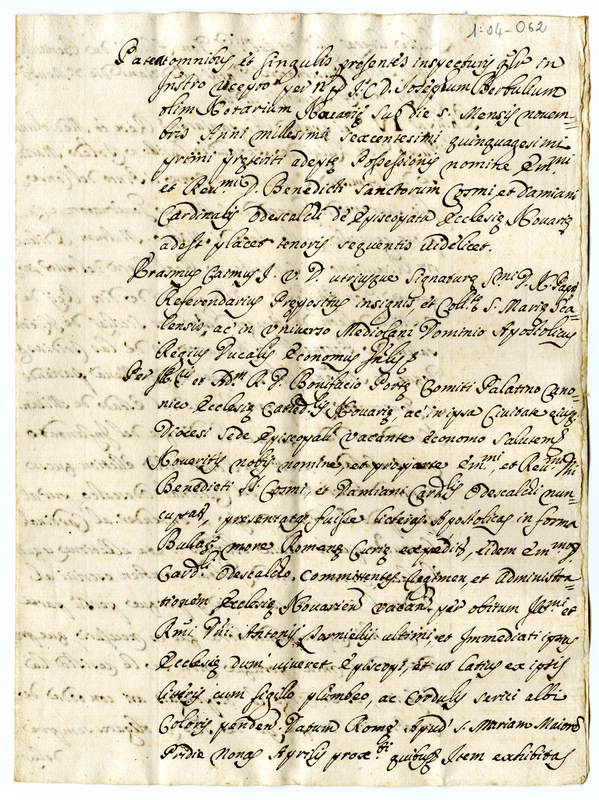 1:04-052
Pateat omnibus et singulis presentes inspecturis qlr in
Instro recepto per D. Josephum Bertulium
olim Notarium Novariæ sub die 5. Mensis novem=
bris Anni millesimi sexcentesimi quinquagesimi
primi presenti adeptæ Possessionis nomine Em.mi
et Reu.mi D. Benedicti Sanctorum Cosmi, et Damiani
Cardinalis Odescalchi de Episcopatu Ecclesiæ Novariæ
adest placet tenoris sequentis videlicet.
Erasmus Caimus J. V. D. utriusque Signaturæ S.mi D. N. Papæ
Referendarius Prepositus insignis, et Coll.tæ S. Mariæ Sca=
lensis, ac in Universo Mediolani Dominio Apostolicus
Regius Ducalis Economus
Per et Adm. R. D. Bonifacio Portæ Comiti Palatino Cano=
nico Ecclesiæ Cathed.lis Novariæ, ac in ipsa Civitate eiusq.
Diocesi Sede Episcopali vacante Economo Salutem
Noveritis nobis nomine, et pro parte Em.mi, et Reu.mi
Benedicti Cosmi, et Damiani Card.lis Odescalchi nun=
cupati, presentatas fuisse licteras Apostolicas in forma
Bullæ, more Romanæ Curiæ expeditas, eidem Em.mo
Card. Odescalco, committentes Regimen et administra=
tionem Ecclesiæ Novarien vacan. per obitum Ill.mi et
R.mi D. Antonij Tornielli ultimi, et Immediati ipsius
Ecclesiæ dum viveret Episcopi, et ut latius ex iptis
litteris cum sigillo plumbeo, ac Cordulis serici albi
Coloris penden. Datum Romæ Apud S. Mariam Maiorem
Pridie Nonas Aprilis prox. quibus Item exhibitas